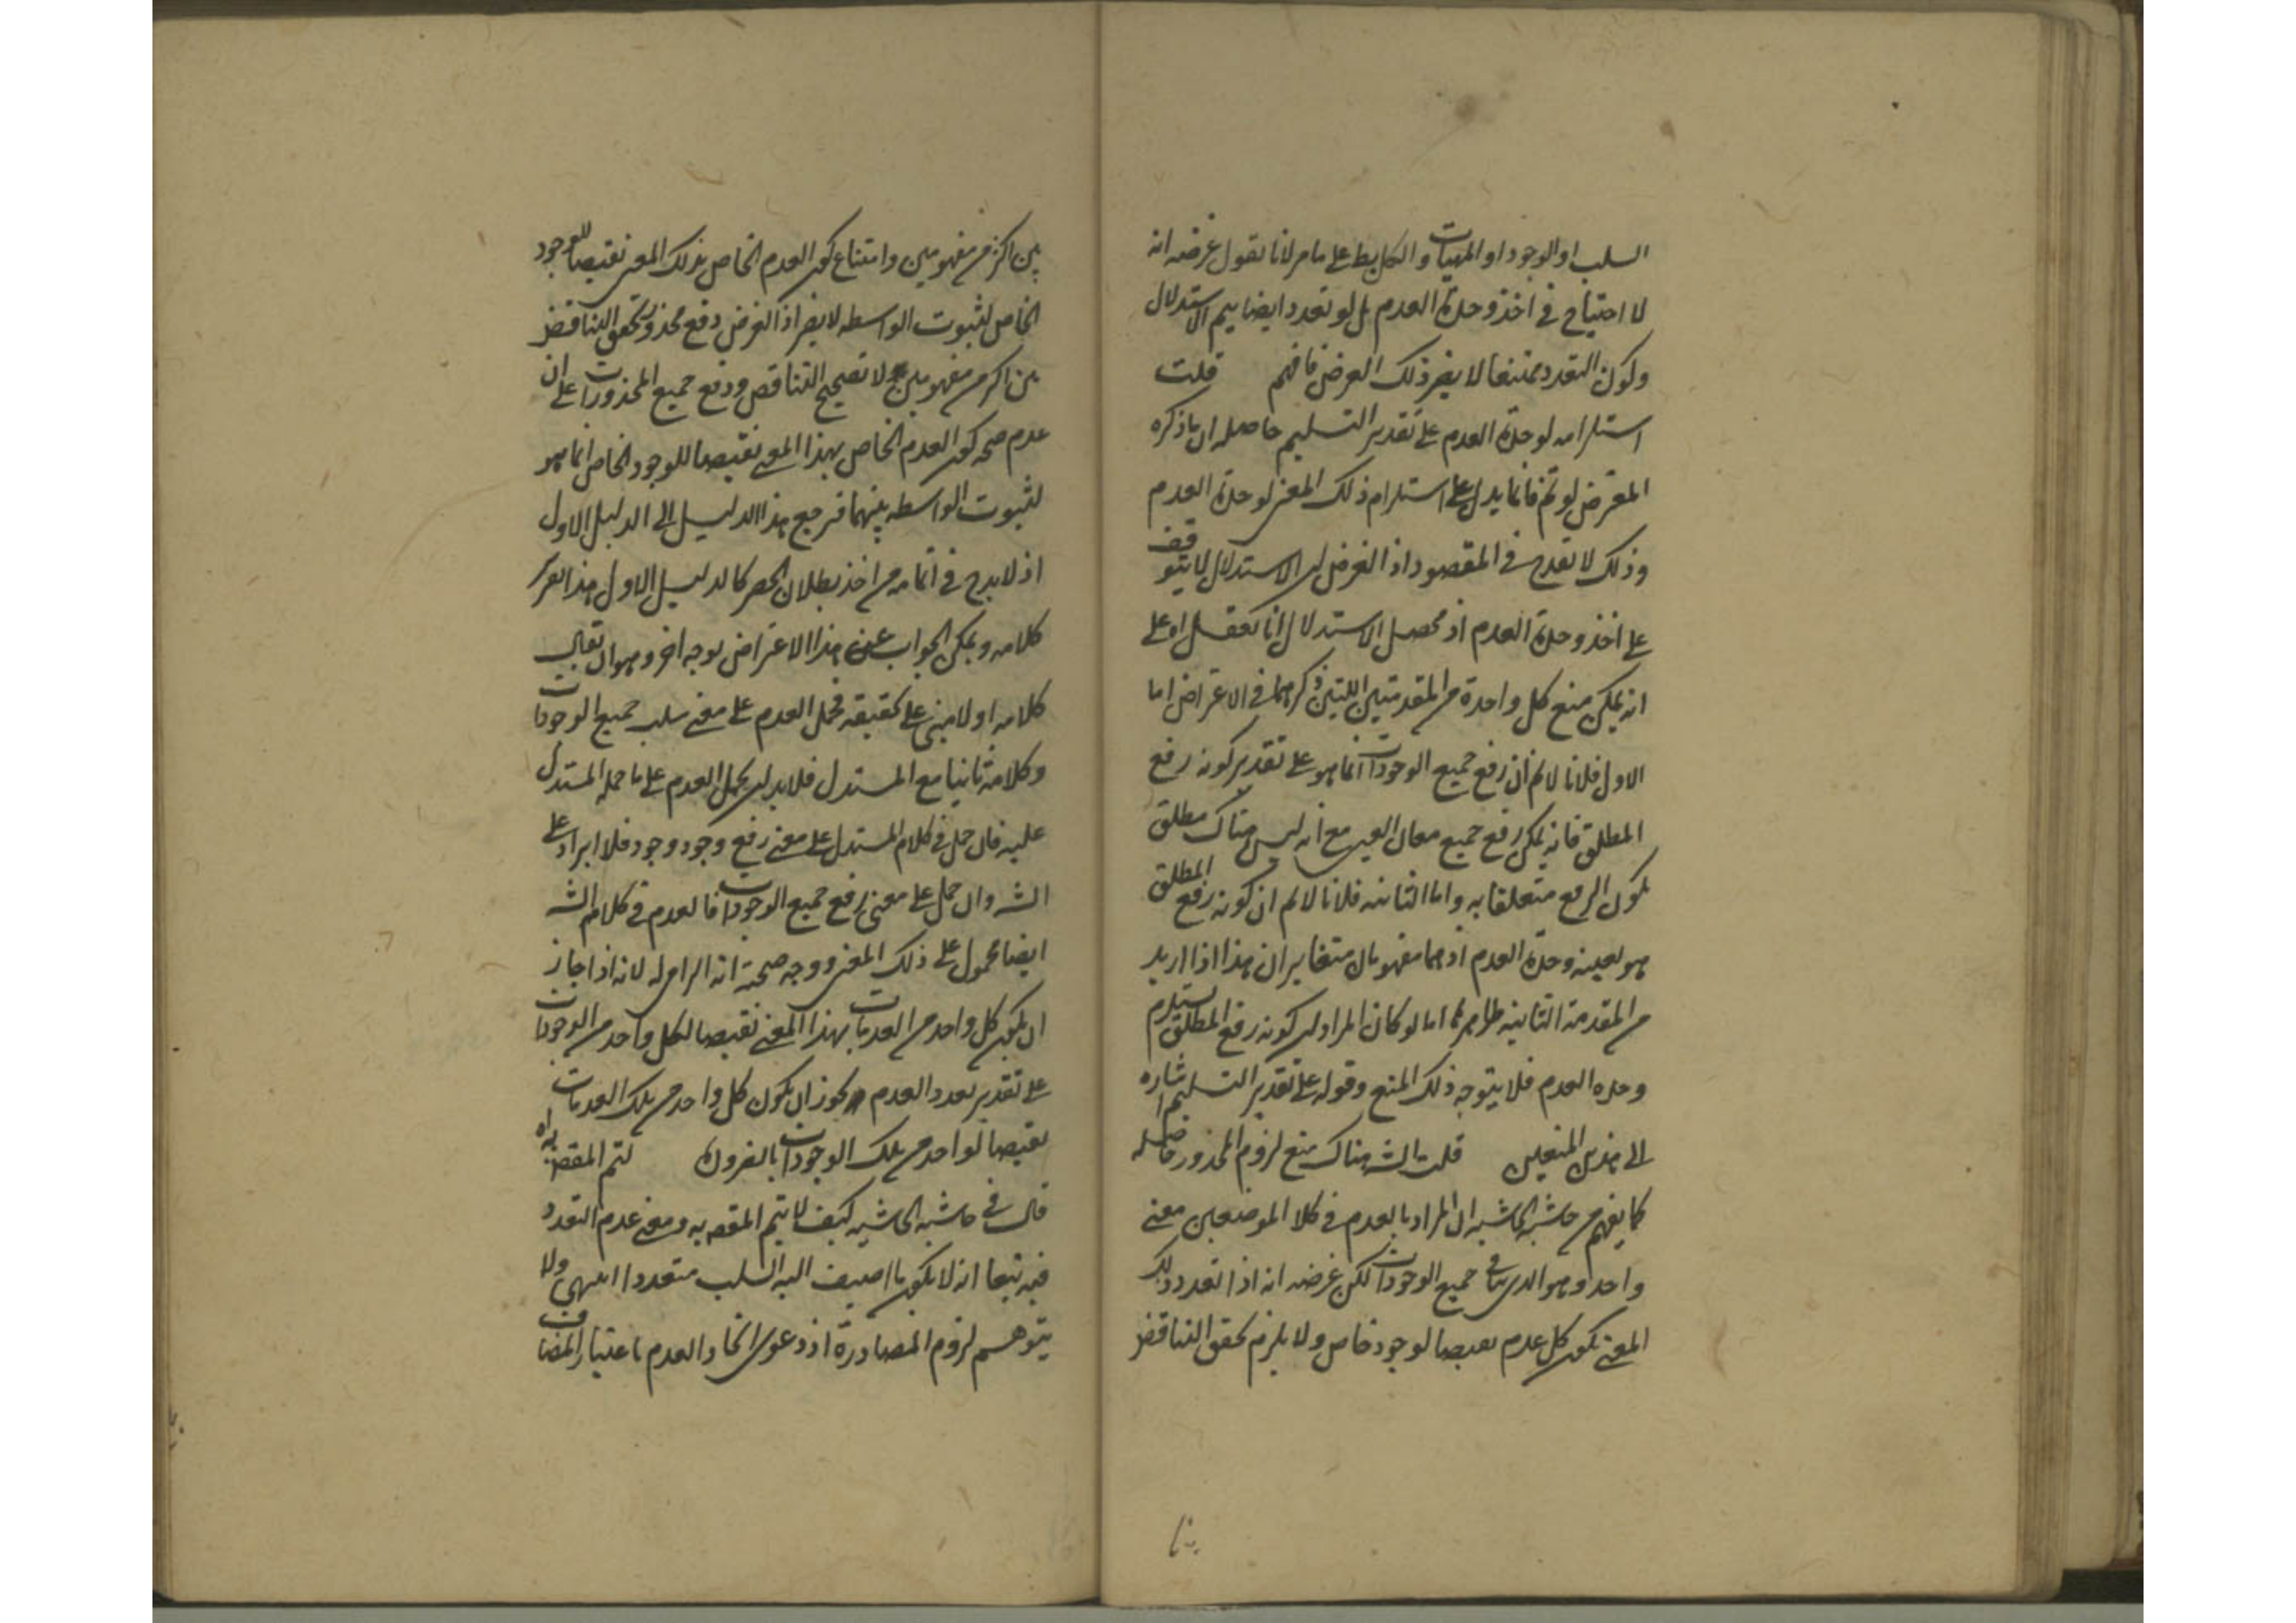 السلب او الوجود او المهيات والكل بط على ما مر لانا نقول غرضه انه
لا احتياج فى اخذ وحدة العدم بل لو تعدد ايضا يتم الاستدلال
وكون التعدد ممتنعا لا يضر ذلك الغرض فافهم قلت
استلزامه لوحدة العدم على تقدير التسليم حاصله ان ما ذكره
المعترض لو تم فانما يدل على استلزام ذلك المعنى لوحدة العدم
وذلك لا يقدح فى المقصود اذ الغرض ان الاستدلال لا يتوقف
على اخذ وحدة العدم اذ محصل الاستدلال انا نعقل اه على
انه يمكن منع كل واحدة من المقدمتين اللتين ذكرهما فى الاعتراض اما
الاول فلانا لا نم ان رفع جميع الوجودات انما هو على تقدير كونه رفع
المطلق فانه يمكن رفع جميع معانى العين مع انه ليس هناك مطلق
يكون الرفع متعلقا به واما الثانيه فلانا لا نم ان كونه رفع المطلق
هو بعينه وحدة العدم اذ هما مفهومان متغايران هذا اذا اريد
من المقدمة الثانيه ظاهرها اما لو كان المراد ان كونه رفع المطلق يستلزم
وحده العدم فلا يتوجه ذلك المنع وقوله على تقدير التسليم اشاره
الى هذين المنعين قلت الشه هناك منع لزوم المحذور حاصله
كما يفهم من حاشية الحاشيه ان المراد بالعدم فى كلا الموضعين معنى
واحد وهو الذى ينافى جميع الوجودات لكن غرضه انه اذا تعدد ذلك
المعنى يكون كل عدم نقيضا لوجود خاص ولا يلزم تحقق التناقض
بين اكثر من مفهومين وامتناع كون العدم الخاص بذلك المعنى نقيضا للوجود
الخاص لثبوت الواسطه لا يضر اذ الغرض دفع محذور تحقق التناقض
بين اكثر من مفهومين لا تصحيح التناقض ودفع جميع المحذورات على ان
عدم صحه كون العدم الخاص بهذا المعنى نقيضا للوجود الخاص انما هو
لثبوت الواسطه بينهما فرجع هذا الدليل الى الدليل الاول
اذ لا بد فى اتمامه من اخذ بطلان الحصر كالدليل الاول هذا تقرير
كلامه ويمكن الجواب عن هذا الاعتراض بوجه اخر وهو ان يقال
كلامه اولا مبنى على تحقيقه فحمل العدم على معنى سلب جميع الوجودات
وكلامه ثانيا مع المستدل فلا بد ان يحمل العدم على ما حمله المستدل
عليه فان حمل فى كلام المستدل على معنى رفع وجود وجود فلا ايراد على
الشه وان حمل على معنى رفع جميع الوجودات فالعدم فى كلام الشه
ايضا محمول على ذلك المعنى ووجه صحته انه الزامى له لانه اذا جاز
ان يكون كل واحد من العدمات بهذا المعنى نقيضا لكل واحد من الوجودات
على تقدير تعدد العدم يجوز ان يكون كل واحد من تلك العدمات
نقيضا لواحد من تلك الوجودات بالضرورة لتم المقصه به اه
قال فى حاشيه الحاشيه كيف لا يتم المقصه به ومعنى عدم التعدد
فيه تبعا انه لا يكون ما اضيف اليه السلب متعددا انتهى ولا
يتوهم لزوم المصادرة اذ دعوى اتحاد العدم باعتبار المضاف